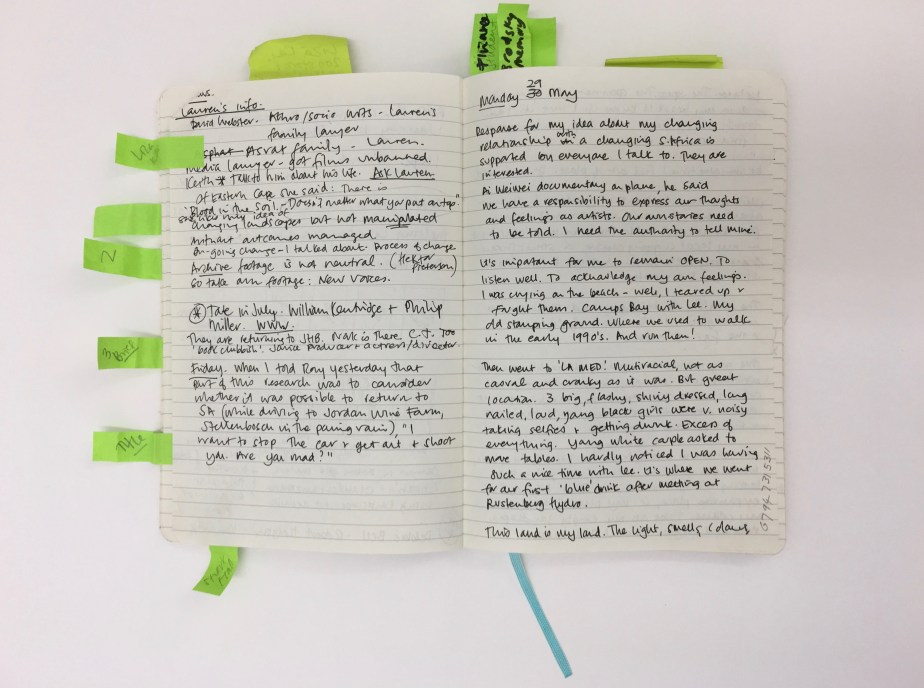 Lauren's info.
David Webster.
Lauren's
family lawyer
Asvat family - Lauren.
Media lawyer - got films unbanned.
Keith * Talk to him about his life. Ask Lauren
Of Eastern Cape she said: There is
'Blood in the soil - Doesn't matter what you put on top."
my idea of
changing landscapes but not manipulated
without outcomes managed
On-going change - I talked about. Process of change.
Archive footage is not neutral. (Hektor
Pieterson)
So take own footage: New voices.
* Tate in July. William Kentridge + Philip
Miller. WWW.
They are returning to JHB. Mark is there. C.T. Too
'book clubbish'. Janice Producer + actress/director.
Friday. When I told Rory yesterday that
part of this research was to consider
whether it was possible to return to
SA (while driving to Jordan Wine Farm,
Stellenbosch in the pouring rain), "I
want to stop the car + get out + shoot
you. Are you mad?"
Brodsky
memory
Monday 29 30 May
Response for my idea about my changing
relationship with a changing S.Africa is
supported by everyone I talk to. They are
interested.
Ai Weiwei documentary on plane, he said
we have a responsibility to express our thoughts
and feelings as artists. Our own stories need
to be told. I need the authority to tell mine.
It's important for me to remain OPEN. To
listen well. To acknowledge my own feelings.
I was crying on the beach - well, I teared up +
fought them. Camps Bay with Lee. My
old stamping ground. Where we used to walk
in the early 1990's. And run then!
Then went to 'LA MED'. Multiracial, not as
casual and cranky as it was. But great
location. 3 big, flashy, shiny dressed, long
nailed, loud, young black girls were v. noisy
taking selfies + getting drunk. Excess of
everything. Young white couple asked to
move tables. I hardly noticed I was having
such a nice time with Lee. It's where we went
for our first 'blue' drink after meeting at
Rustenberg Hydro.
This land is my land. The light, smells, colours,